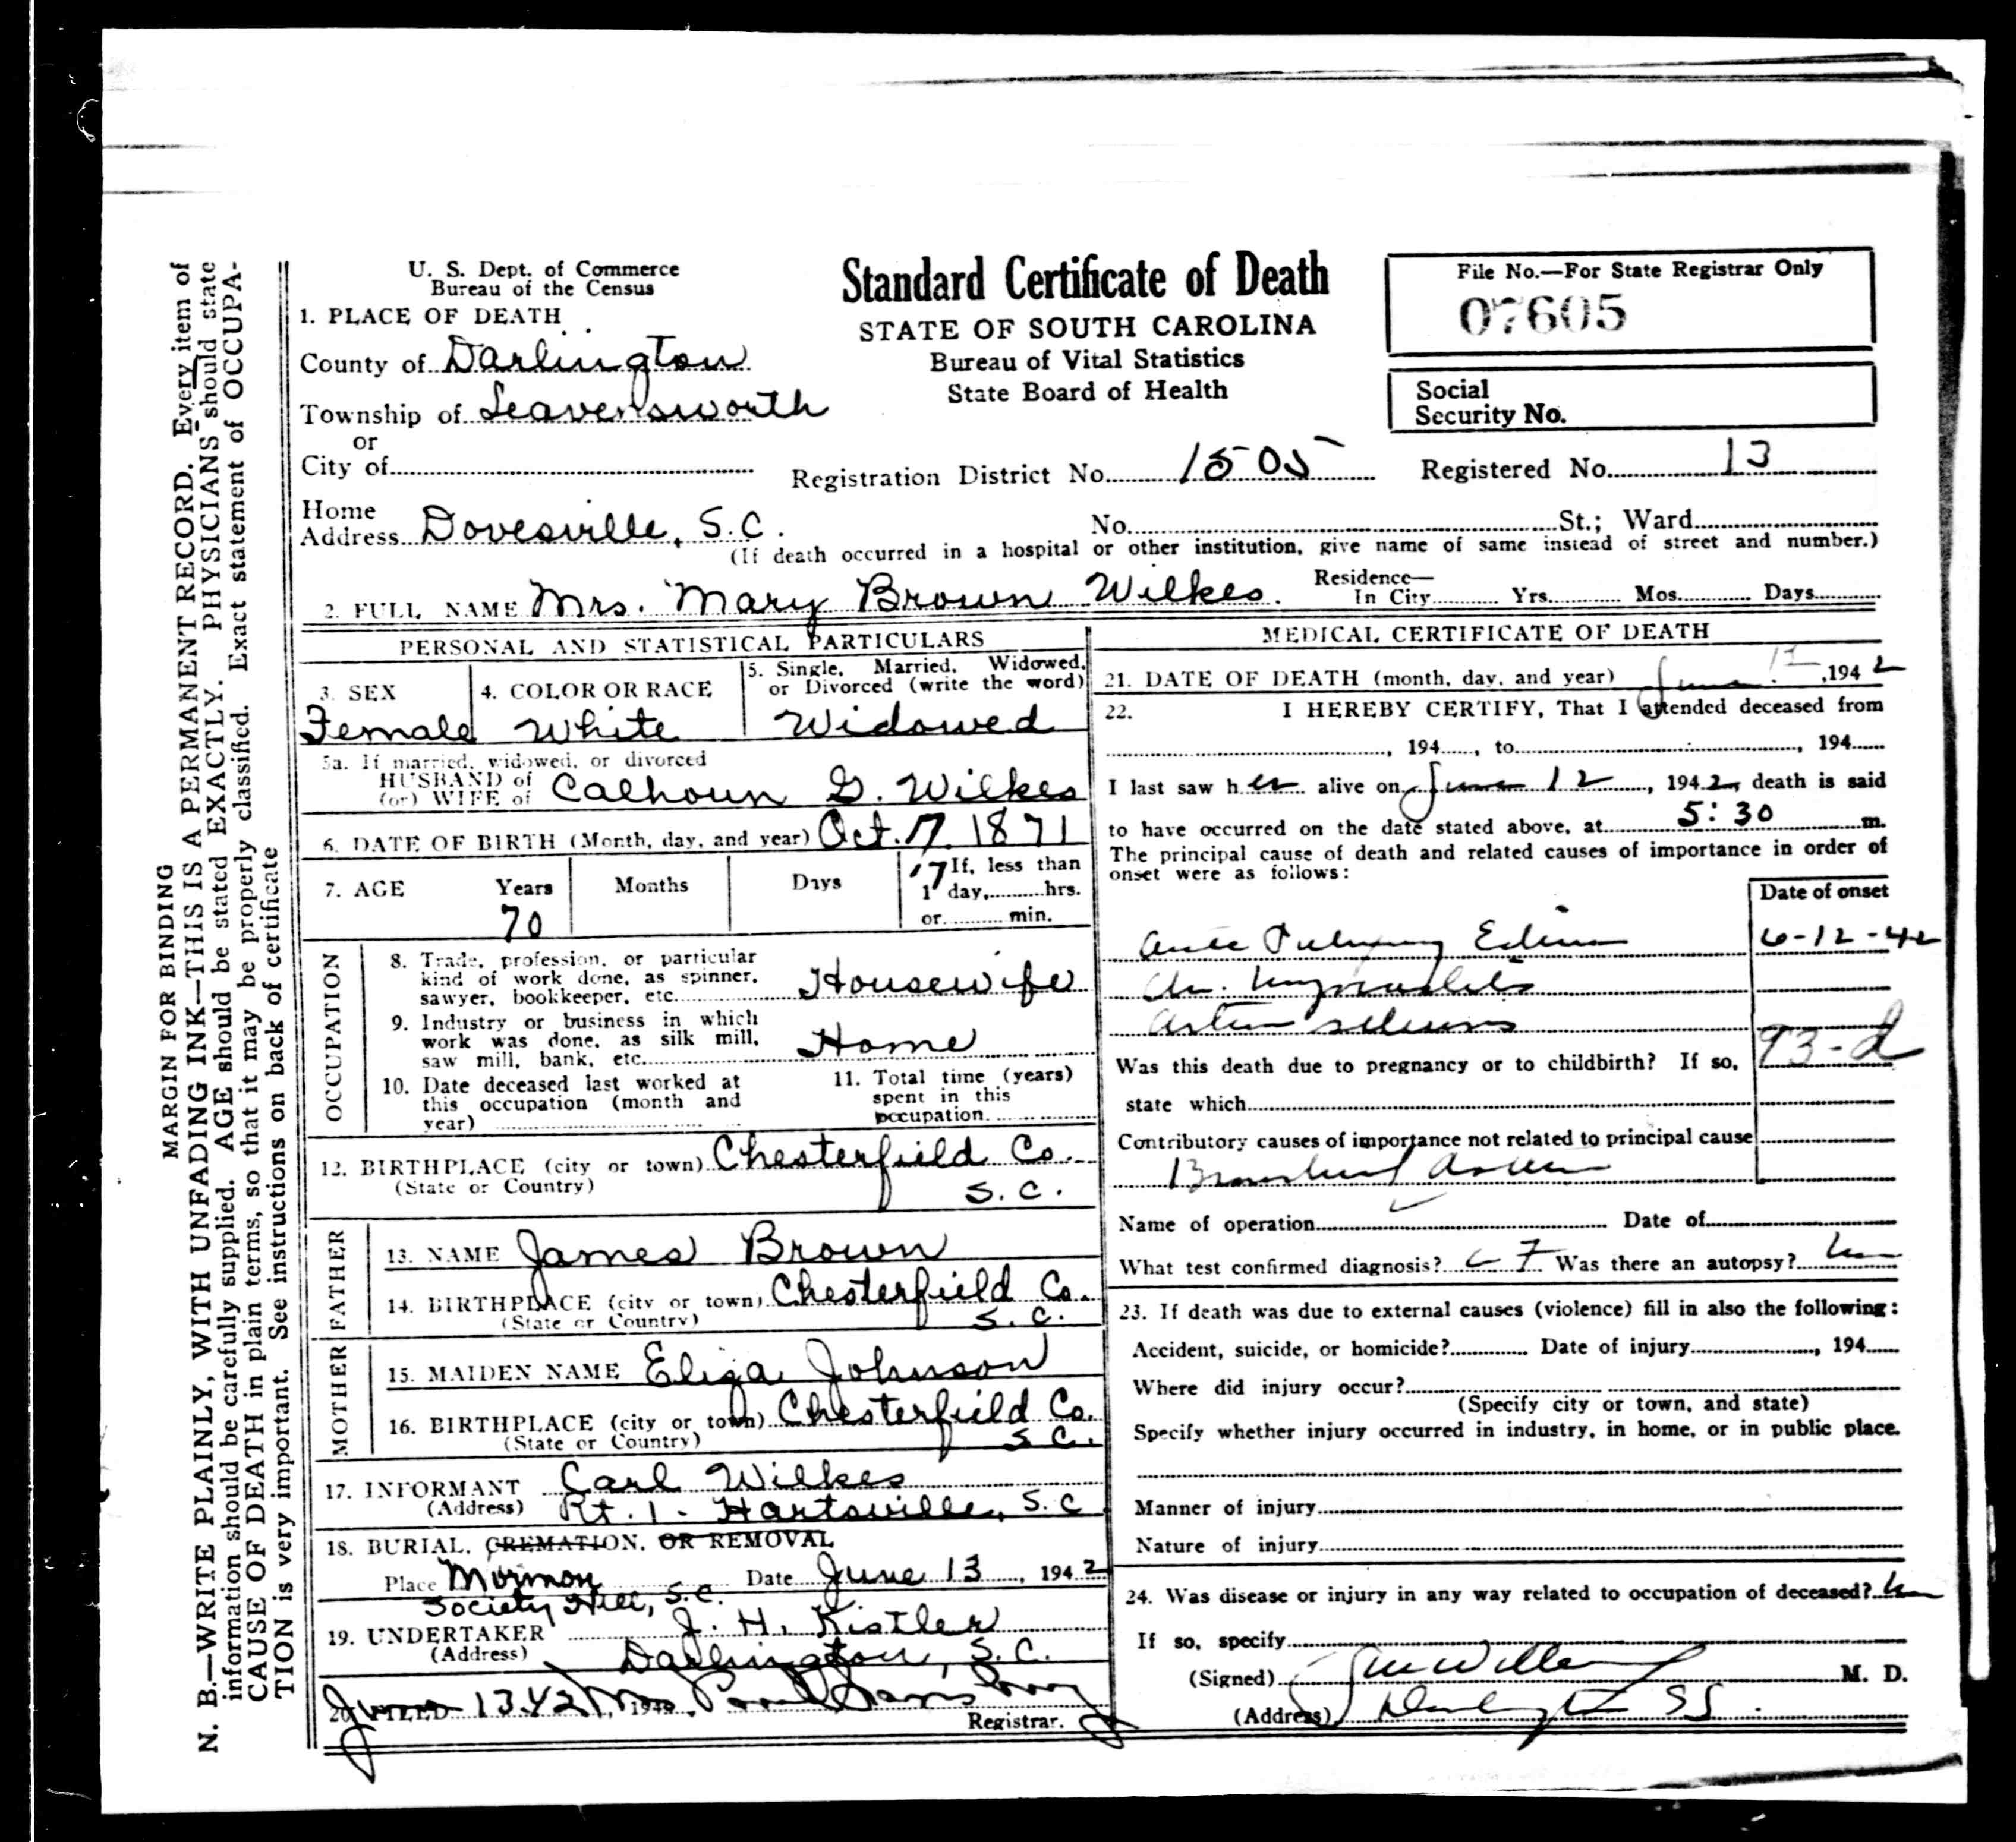 U. S. Dept. of Commerce
Bureau of the Census
Standard Certificate of Death
STATE OF SOUTH CAROLINA
Bureau of Vital Statistics
State Board of Health
File No.—For State Registrar Only
07605
Social
Security No.
1. PLACE OF DEATH
County of Darlington
Township of Leavensworth
or
City of
Registration District No. 1505
Registered No. 13
Home
Address Dovesville, S.C.
No. St.; Ward
(If death occurred in a hospital or other institution, give name of same instead of street and number.)
2. FULL NAME Mrs. Mary Brown Wilkes.
Residence—
In City Yrs. Mos. Days
PERSONAL AND STATISTICAL PARTICULARS
3. SEX
Female
4. COLOR OR RACE
White
5. Single, Married, Widowed,
or Divorced (write the word)
Widowed
5a. If married, widowed, or divorced
HUSBAND of
(or) WIFE of Calhoun G. Wilkes
6. DATE OF BIRTH (Month, day, and year) Oct. 17 1871
7. AGE Years Months Days If, less than
1 day, hrs.
or min.
70
17
OCCUPATION
8. Trade, profession, or particular
kind of work done, as spinner,
sawyer, bookkeeper, etc. Housewife
9. Industry or business in which
work was done, as silk mill,
saw mill, bank, etc. Home
10. Date deceased last worked at
this occupation (month and
year)
11. Total time (years)
spent in this
occupation
12. BIRTHPLACE (city or town) Chesterfield Co.
(State or Country) S.C.
FATHER
13. NAME James Brown
14. BIRTHPLACE (city or town) Chesterfield Co.
(State or Country) S.C.
MOTHER
15. MAIDEN NAME Eliza Johnson
16. BIRTHPLACE (city or town) Chesterfield Co.
(State or Country) S.C.
17. INFORMANT Carl Wilkes
(Address) Rt. 1 - Hartsville, S.C
18. BURIAL, CREMATION, OR REMOVAL
Place Mormon Date June 13, 1942
Society Hill, S.C.
19. UNDERTAKER J. H. Kistler
(Address) Darlington, S.C.
20. FILED June 13 42, 194 Mrs. Paul
Registrar.
MEDICAL CERTIFICATE OF DEATH
21. DATE OF DEATH (month, day, and year) June 12, 1942
22. I HEREBY CERTIFY, That I attended deceased from
, 194, to , 194
I last saw her alive on June 12, 1942, death is said
to have occurred on the date stated above, at 5:30 m.
The principal cause of death and related causes of importance in order of
onset were as follows:
Date of onset
Acute Pulmonary Edema 6-12-42
Chr. Myocarditis
Arterio sclerosis
93-d
Was this death due to pregnancy or to childbirth? If so,
state which
Contributory causes of importance not related to principal cause
Bronchial Asthma
Name of operation Date of
What test confirmed diagnosis? Was there an autopsy? no
23. If death was due to external causes (violence) fill in also the following:
Accident, suicide, or homicide? Date of injury , 194
Where did injury occur?
(Specify city or town, and state)
Specify whether injury occurred in industry, in home, or in public place.
Manner of injury
Nature of injury
24. Was disease or injury in any way related to occupation of deceased? no
If so, specify
(Signed) M. D.
(Address) Darlington SC
MARGIN FOR BINDING
N. B.—WRITE PLAINLY, WITH UNFADING INK—THIS IS A PERMANENT RECORD. Every item of
information should be carefully supplied. AGE should be stated EXACTLY. PHYSICIANS should state
CAUSE OF DEATH in plain terms, so that it may be properly classified. Exact statement of OCCUPA-
TION is very important. See instructions on back of certificate